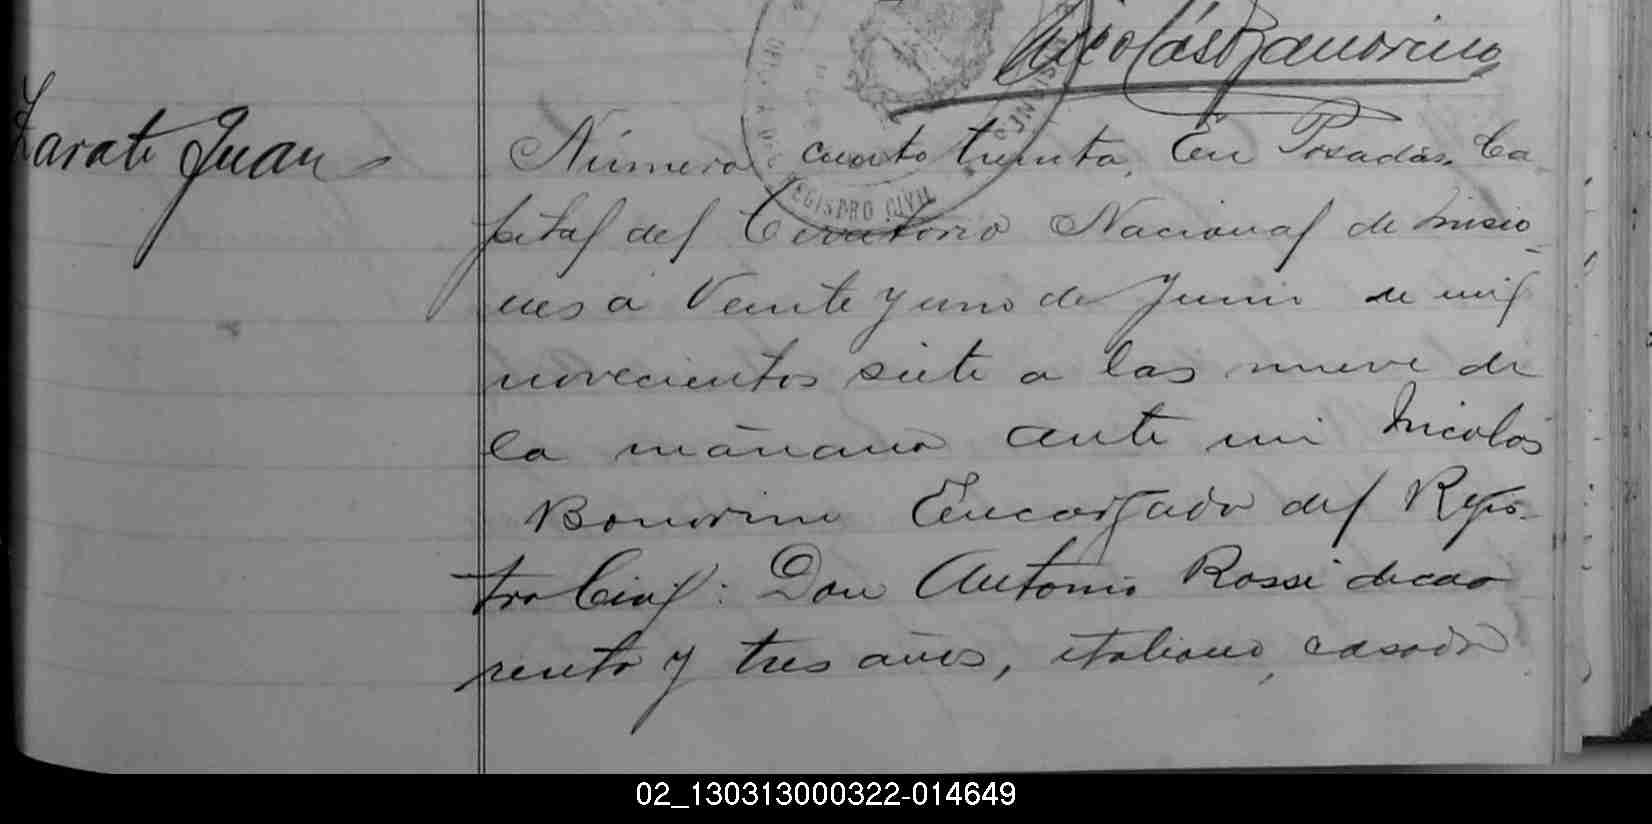 Nicolás Bonorino
REGISTRO CIVIL
Zarate Juan
Número ciento treinta, En Posadas, Ca
pital del Territorio Nacional de Misio
nes a Veinte y uno de Junio de mil
novecientos siete a las nueve de
la mañana ante mi Nicolás
Bonorino Encargado del Regis-
tro Civil: Don Antonio Rossi de cua
renta y tres años, italiano, casado
02_130313000322-014649